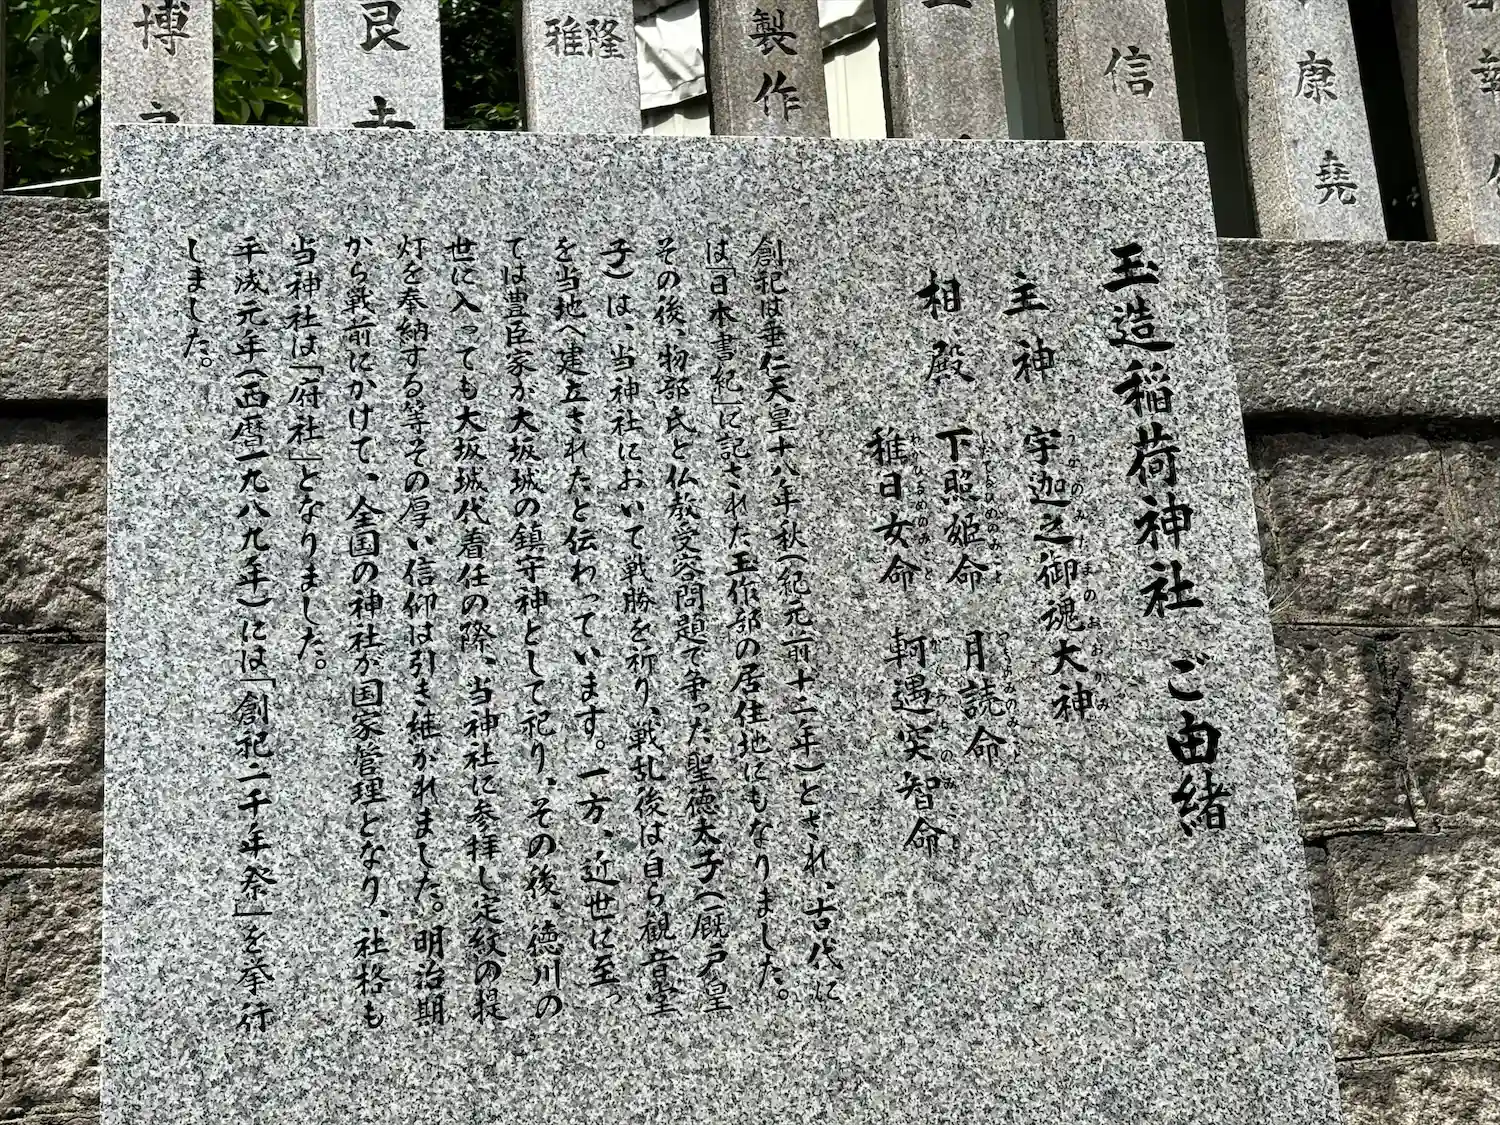 玉造稲荷神社 ご由緒
主神 宇迦之御魂大神
うかのみたまのおおかみ
相殿 下照姫命 月読命
したてるひめのみこと つくよみのみこと
稚日女命 軻遇突智命
わかひるめのみこと かぐつちのみこと
創祀は垂仁天皇十八年秋(紀元前十二年)とされ、古代に
は「日本書紀」に記された玉作部の居住地にもなりました。
その後、物部氏と仏教受容問題で争った聖徳太子(厩戸皇
子)は、当神社において戦勝を祈り、戦乱後は自ら観音堂
を当地へ建立されたと伝わっています。一方、近世に至っ
ては豊臣家が大坂城の鎮守神として祀り、その後、徳川の
世に入っても大坂城代着任の際、当神社に参拝し定紋の提
灯を奉納する等その厚い信仰は引き継がれました。明治期
から戦前にかけて、全国の神社が国家管理となり、社格も
当神社は「府社」となりました。
平成元年(西暦一九八九年)には「創祀二千年祭」を挙行
しました。
博
良
雅隆
製作
信
康堯